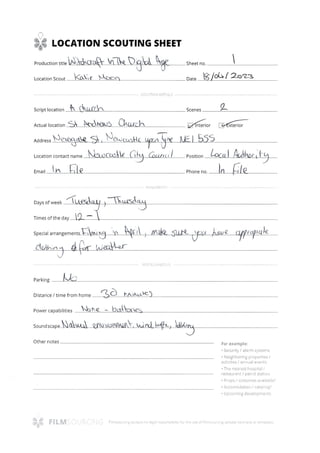 LOCATION SCOUTING SHEET
Production title Witchcraft In The Digital Age Sheet no. 1
Location Scout Katie Moon Date 18/04/2023
Script location A church Scenes 2
Actual location St Andrews Church Interior Exterior
Address Newgate St, Newcastle upon Tyne NE1 5SS
Location contact name Newcastle City Council Position Local Authority
Email In File Phone no. In File
Days of week Tuesday, Thursday
Times of the day 12-1
Special arrangements Filming in April, make sure you have appropriate
clothing for weather
Parking No
Distance / time from home 30 minutes
Power capabilities None - batteries
Soundscape Natural environment, wind, traffic, talking
Other notes
For example:
• Security / alarm systems
• Neighboring properties /
activities / annual events
• The nearest hospital /
restaurant / petrol station
• Props / costumes available?
• Accomodation / catering?
• Upcoming developments
FILMSOURCING